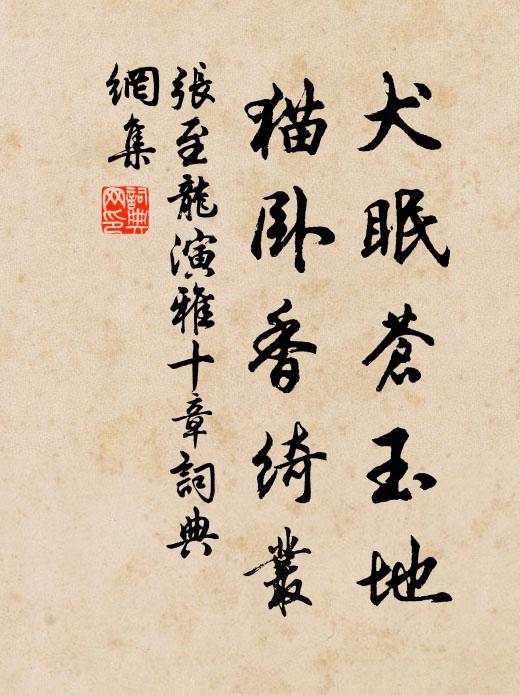 犬眠蒼玉地
猫卧香綺叢
張至龍演雅十章詞典
網集
詞典網印